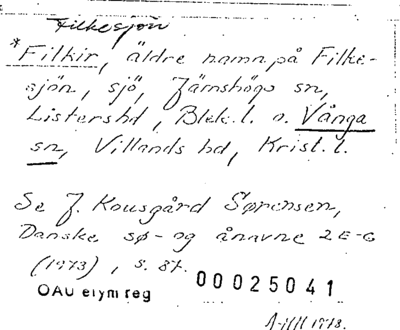 Filkesjön
*Filkir, äldre namn på Filke-
sjön, sjö, Jämshögs sn,
Listers hd, Blek. l. o. Vånga
sn, Villands hd, Krist. l.
Se J. Kousgård Sørensen,
Danske sø- og ånavne 2 E-G
(1973), s. 87.
00025041
OAU etym reg
1973.